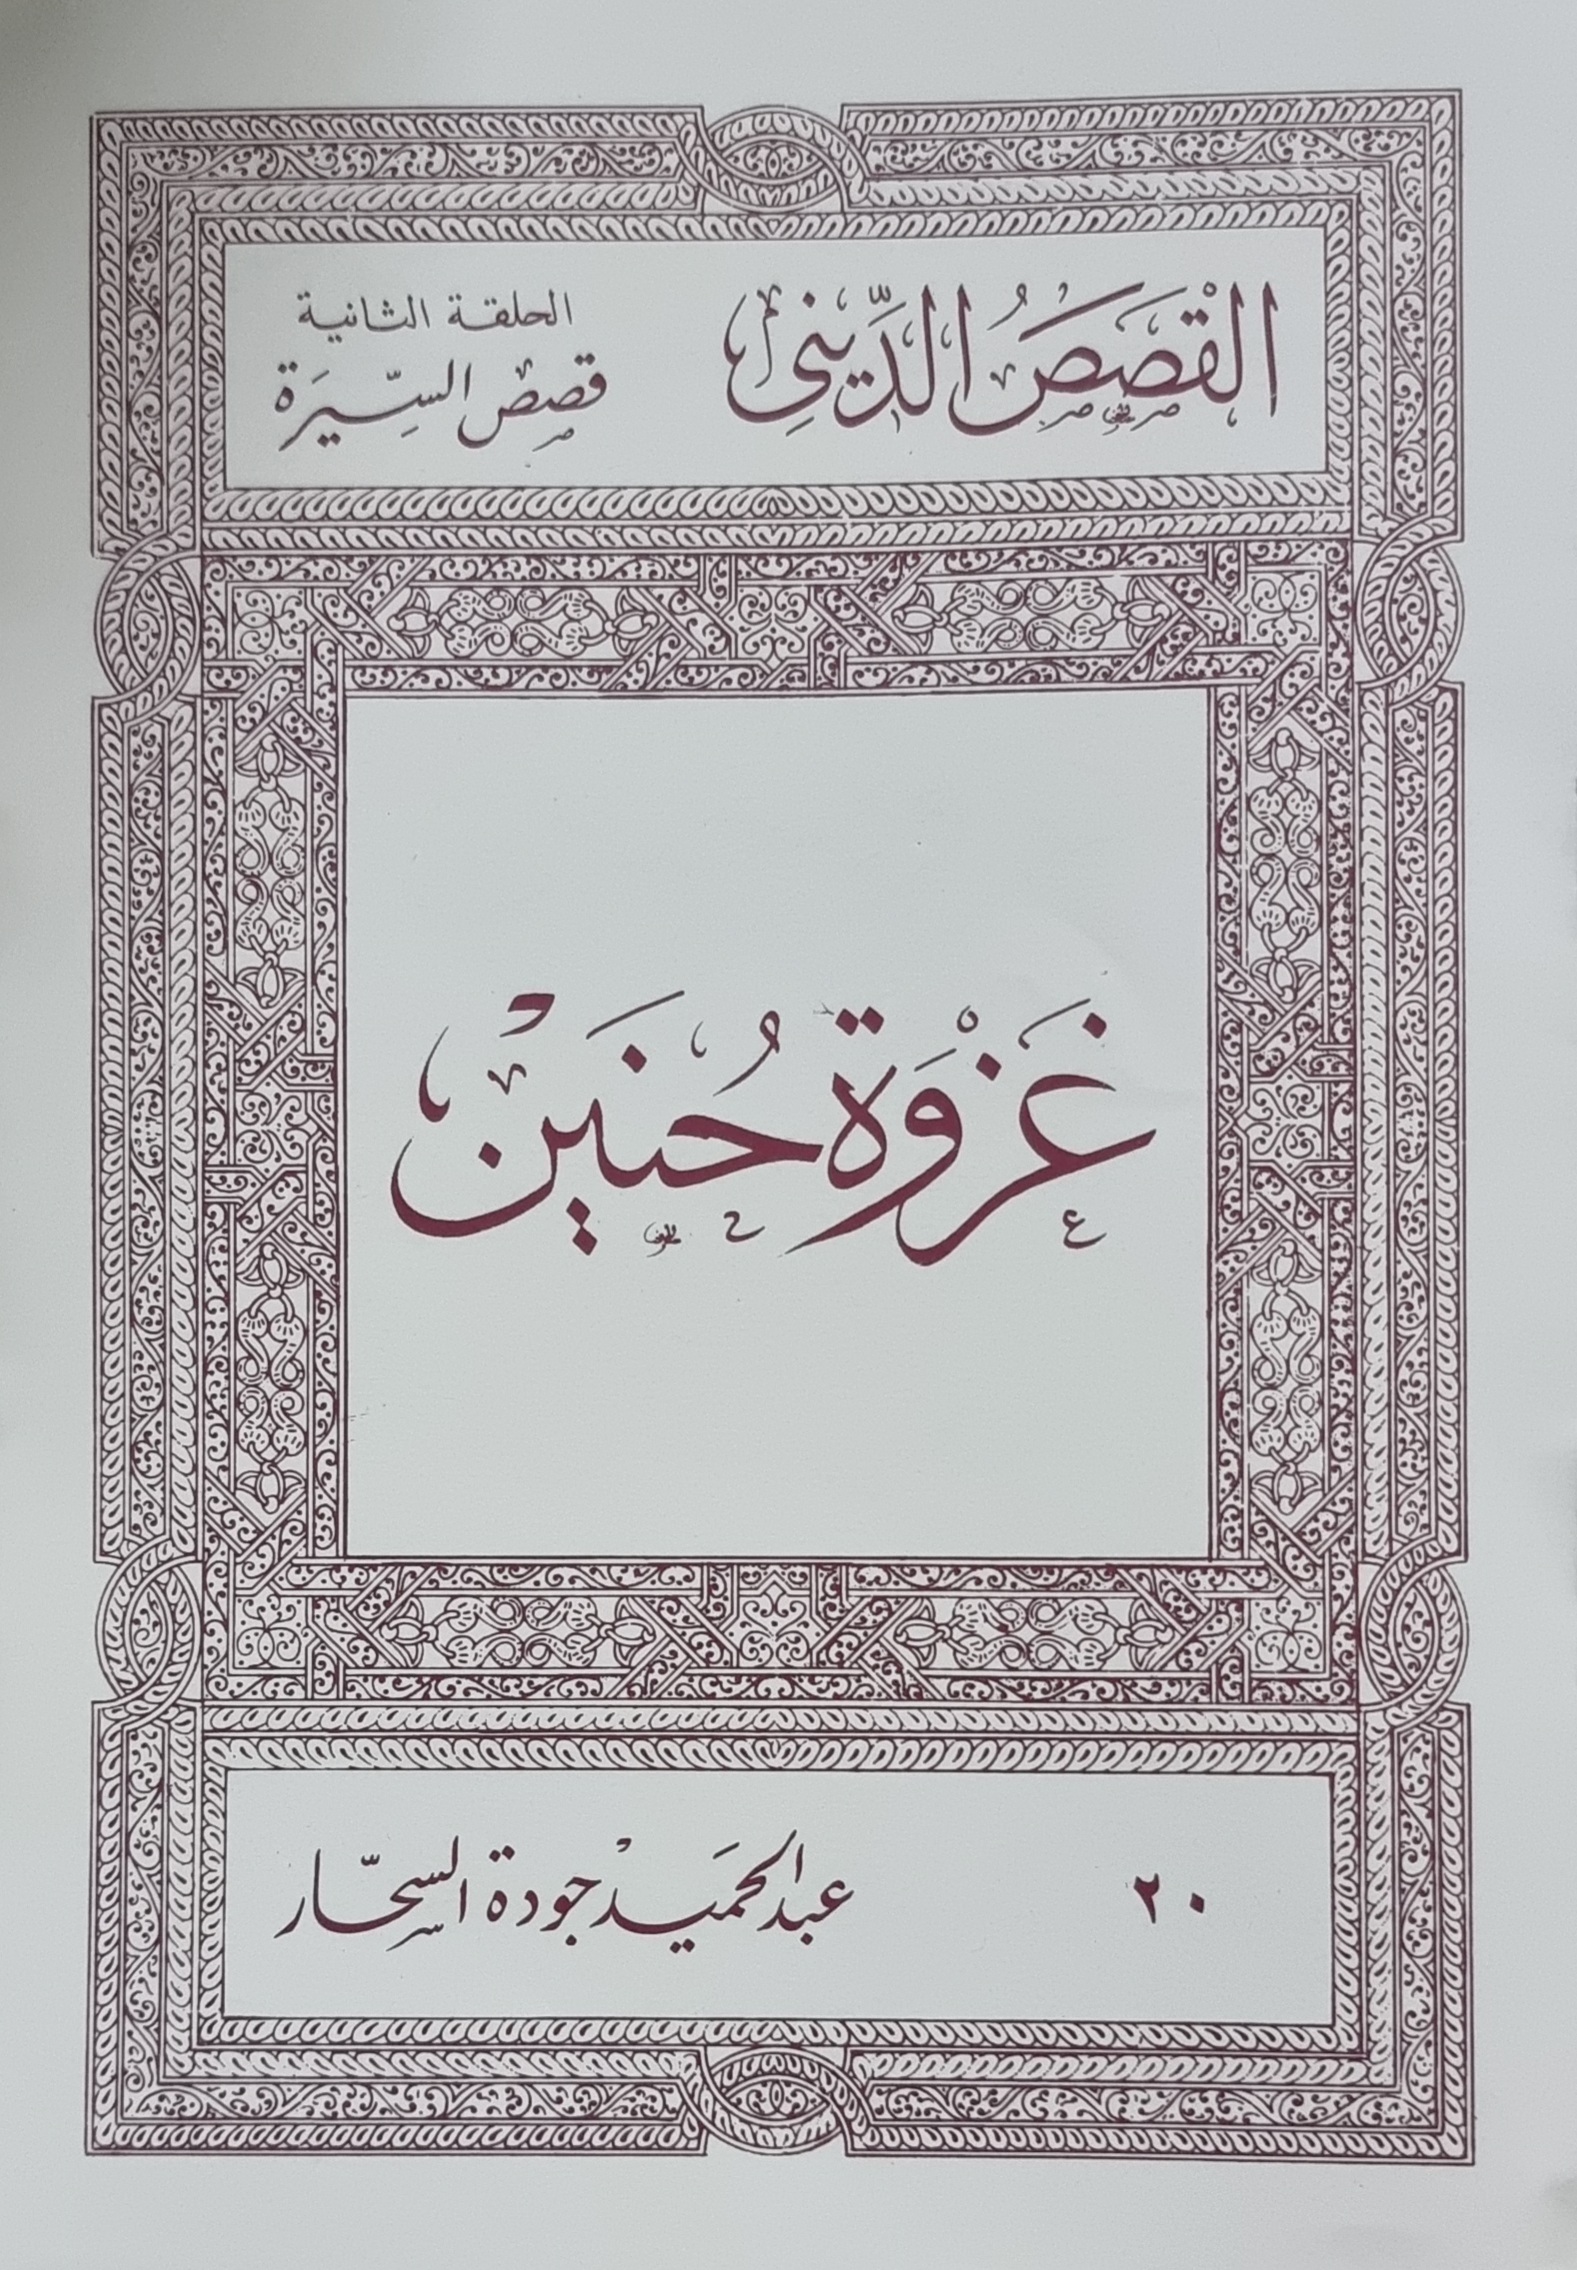 القَصَصُ الدِّينِى
الحلقة الثانية
قصص السِّيرَة
غَزْوَة حُنَيْن
٢٠
عبد الحَميْد جودة السحّار